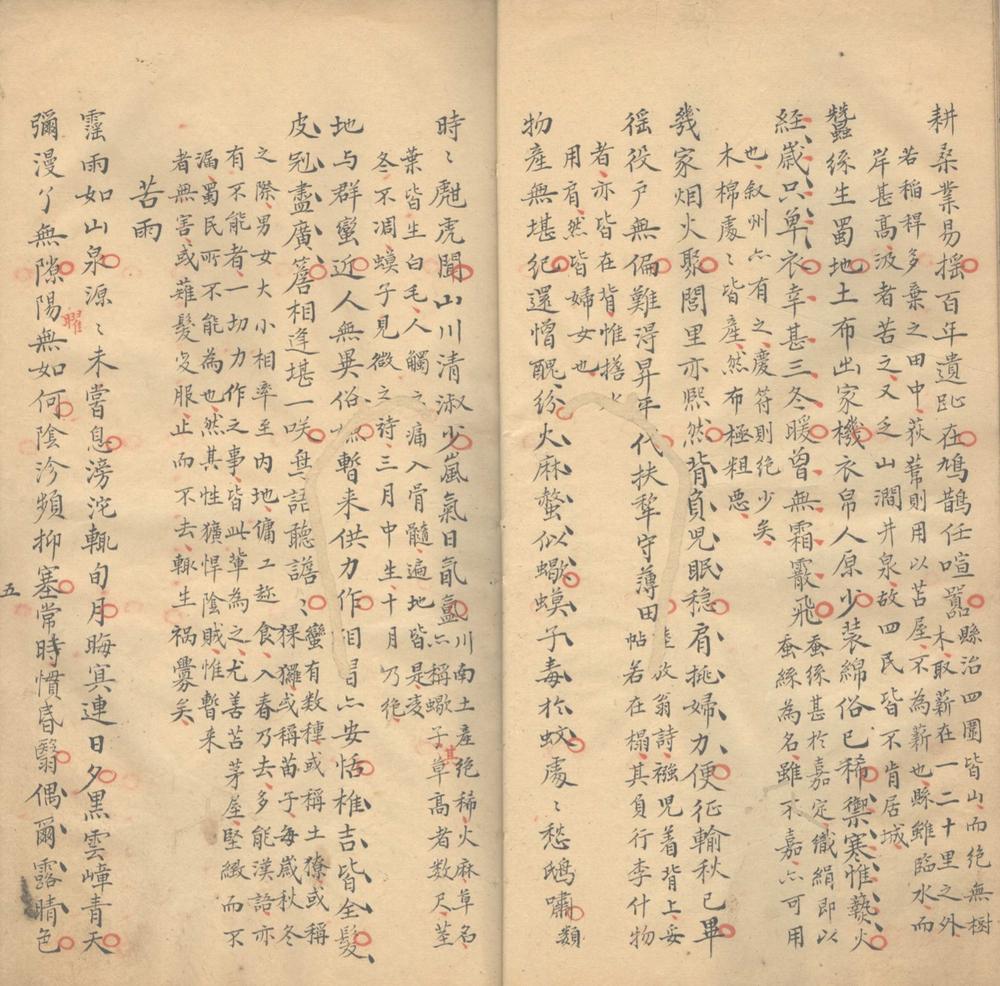 耕桑業易揺百年遺趾在鳩鵲任喧嚻
縣治四圍皆山而絶無樹
木取薪在一二十里之外
若稻稈多棄之田中荻葦則用以苫屋不為薪也縣雖臨水而
岸甚高汲者苦之又乏山澗井泉故四民皆不肯居城
蠶絲生蜀地土布出家機衣帛人原少装綿俗已稀禦寒惟爇火
經歲只单衣幸甚三冬暖曾無霜霰飛
蚕絲甚於嘉定織絹即以
蚕絲為名雖不嘉亦可用
也叙州亦有之慶符則绝少矣
木棉處〻皆産然布極粗悪
幾家烟火聚閭里亦熙然背負兒眠稳肩挑婦力便征輸秋已畢
徭役戶無偏難得昇平代扶犂守薄田
放翁詩襁兒着背上妥
帖若在榻其負行李什物
者亦皆在背惟搭水
用肩然皆婦女也
物産無堪紀還憎醜紛火麻螫似蠍蟆子毒於蚊處〻愁鴟嘯
類
時〻魋虎聞山川清淑少嵐氣日氤氲
川南土産绝稀火麻草名
亦稱蠍子草其高者数尺莖
葉皆生白毛人觸之痛入骨髓遍地皆是凌
冬不凋蟆子見微之詩三月中生十月乃绝
地与群蠻近人無異俗嫌暫来供力作相習亦安恬椎吉皆全髮
皮冠盡廣簷相逢堪一咲與語聽譫〻
蠻有数種或稱土獠或稱
猓玀或稱苗子每歲秋冬
之際男女大小相率至内地傭工趂食入春乃去多能漢語亦
有不能者一切力作之事皆此輩為之尤善苫茅屋堅緻而不
漏蜀民所不能為也然其性獷悍陰賊惟暫来
者無害或薙髮变服止而不去輒生禍釁矣
苦雨
霪雨如山泉源〻未嘗息滂沱輒旬月晦冥連日夕黑雲嶂青天
彌漫了無隙陽曜無如何陰沴頻抑塞常時慣昏翳偶爾露晴色
五